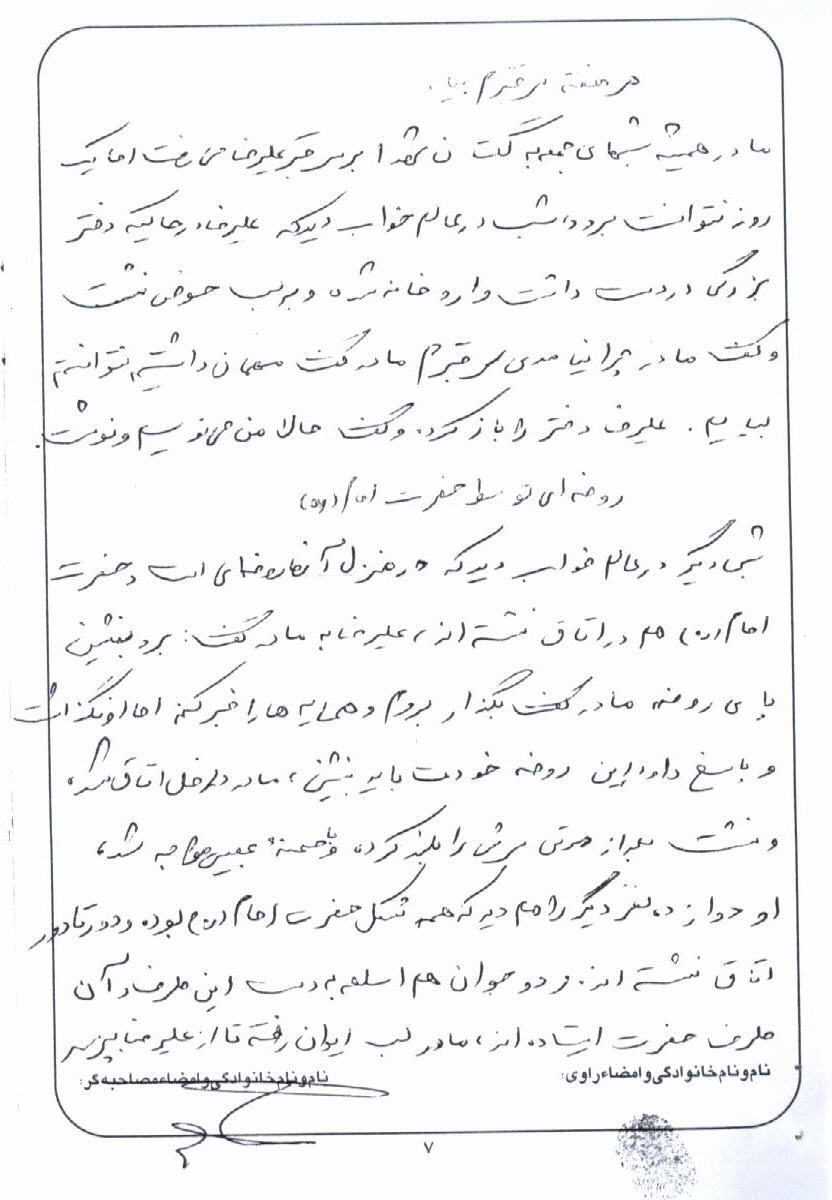 هر هفته سر قبرم بیا.
مادر همیشه شبهای جمعه به گلستان شهدا بر سر قبر علیرضا می رفت اما یک
روز نتوانست برود، شب در عالم خواب دید که علیرضا در حالیکه دفتر
بزرگی در دست داشت وارد خانه شده و بر لب حوض نشست
و گفت مادر چرا نیامدی سر قبرم مادر گفت مهمان داشتیم نتوانستم
بیایم. علیرضا دفتر را باز کرد. و گفت حالا من می نویسم و نوشت.
روضه ای توسط حضرت امام (ره)
شبی دیگر در عالم خواب دید که در منزل آنها روضه ای است و حضرت
امام (ره) هم در اتاق نشسته اند، علیرضا به مادر گفت: برو بنشین
پای روضه مادر گفت بگذار بروم و همسایه ها را خبر کنم اما او نگذاشت
و پاسخ داد: این روضه خودت باید بنشینی، مادر داخل اتاق شد،
و نشست بعد از مدتی سرش را بلند کرد، و با صحنهٔ عجیبی مواجه شد،
او دوازده نفر دیگر را هم دید که همه شکل حضرت امام (ره) بوده و دور تا دور
اتاق نشسته اند. و دو جوان هم اسلحه به دست این طرف و آن
طرف حضرت ایستاده اند، مادر لب ایوان رفته تا از علیرضا بپرسد
نام و نام خانوادگی و امضاء راوی: نام و نام خانوادگی و امضاء مصاحبه گر:
۷